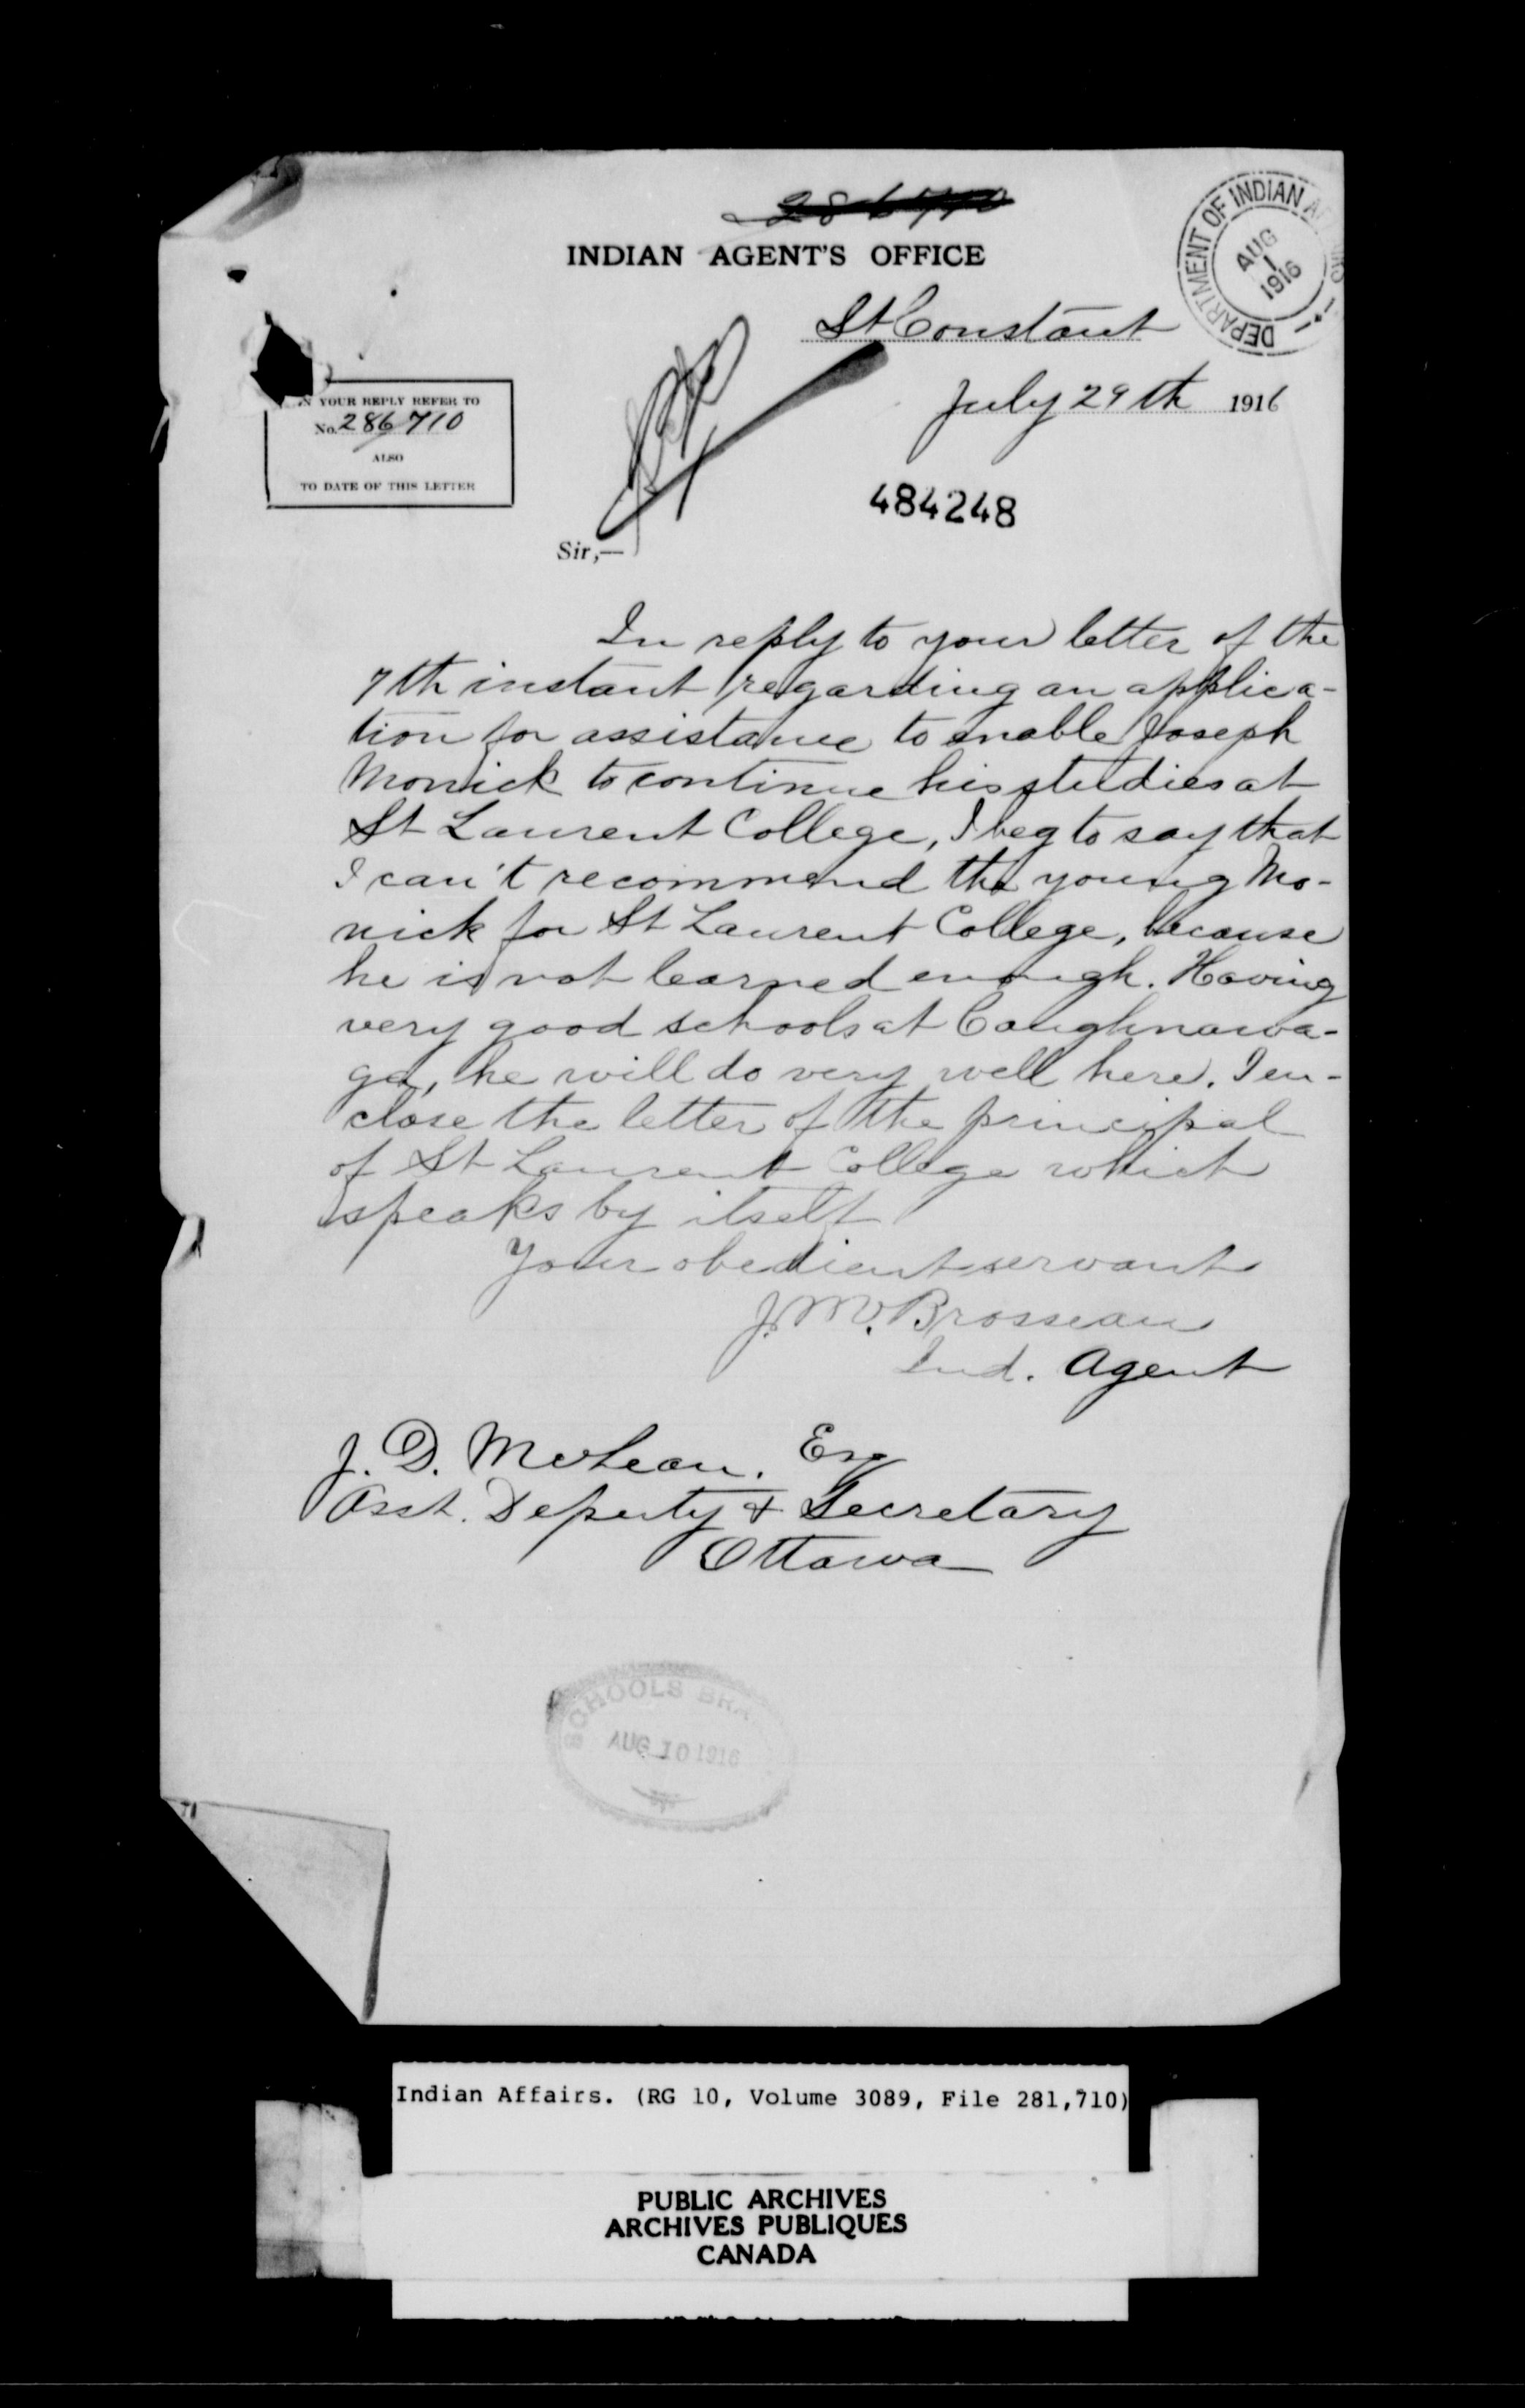 286710
INDIAN AGENT'S OFFICE
DEPARTMENT OF INDIAN
AUG
1
1916
St Constant
July 29th 1916
YOUR REPLY REFER TO
No. 286710
ALSO
TO DATE OF THIS LETTER
484248
Sir,—
In reply to your letter of the
7th instant regarding an applica-
tion for assistance to enable Joseph
Monick to continue his studies at
St Laurent College, I beg to say that
I can't recommend the young Mo-
nick for St Laurent College, because
he is not learned enough. Having
very good schools at Caughnawa-
ga, he will do very well here. I en-
close the letter of the principal
of St Laurent College which
speaks by itself
Your obedient servant
J. M. Brosseau
Ind. Agent
J. D. McLean, Esq
Asst. Deputy & Secretary
Ottawa
SCHOOLS BRA
AUG 10 1916
Indian Affairs. (RG 10, Volume 3089, File 281,710)
PUBLIC ARCHIVES
ARCHIVES PUBLIQUES
CANADA